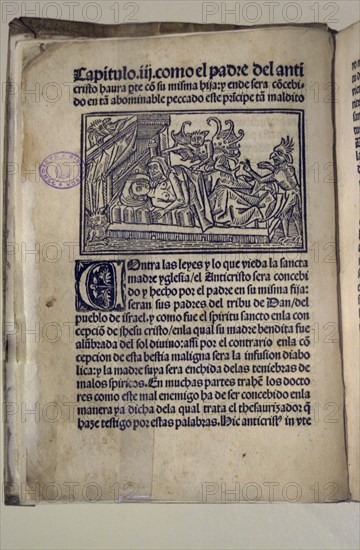 Capitulo.iij.como el padre del anti
cristo haura pte cõ su misma hija:y ende sera cõcebi-
do en tã abominable peccado este prĩcipe tã maldito
COntra las leyes y lo que vieda la sancta
madre yglesia/el Anticristo sera concebi
do y hecho por el padre en su misma fija:
seran sus padres del tribu de Dan/del
pueblo de israel.y como fue el spiritu sancto enla con
cepciõn de jhesu cristo/enla qual su madre bendita fue
alũbrada del sol diuino:assi por el contrario enla cõ
cepcion de esta bestia maligna sera la infusion diabo
lica:y la madre suya sera enchida delas teniebras de
malos spiritus.En muchas partes trahẽ los docto
res como este mal enemigo ha de ser concebido enla
manera ya dicha dela qual trata el thesaurizador q̃
haze testigo por estas palabras.Hic anticrist⁹ in vte